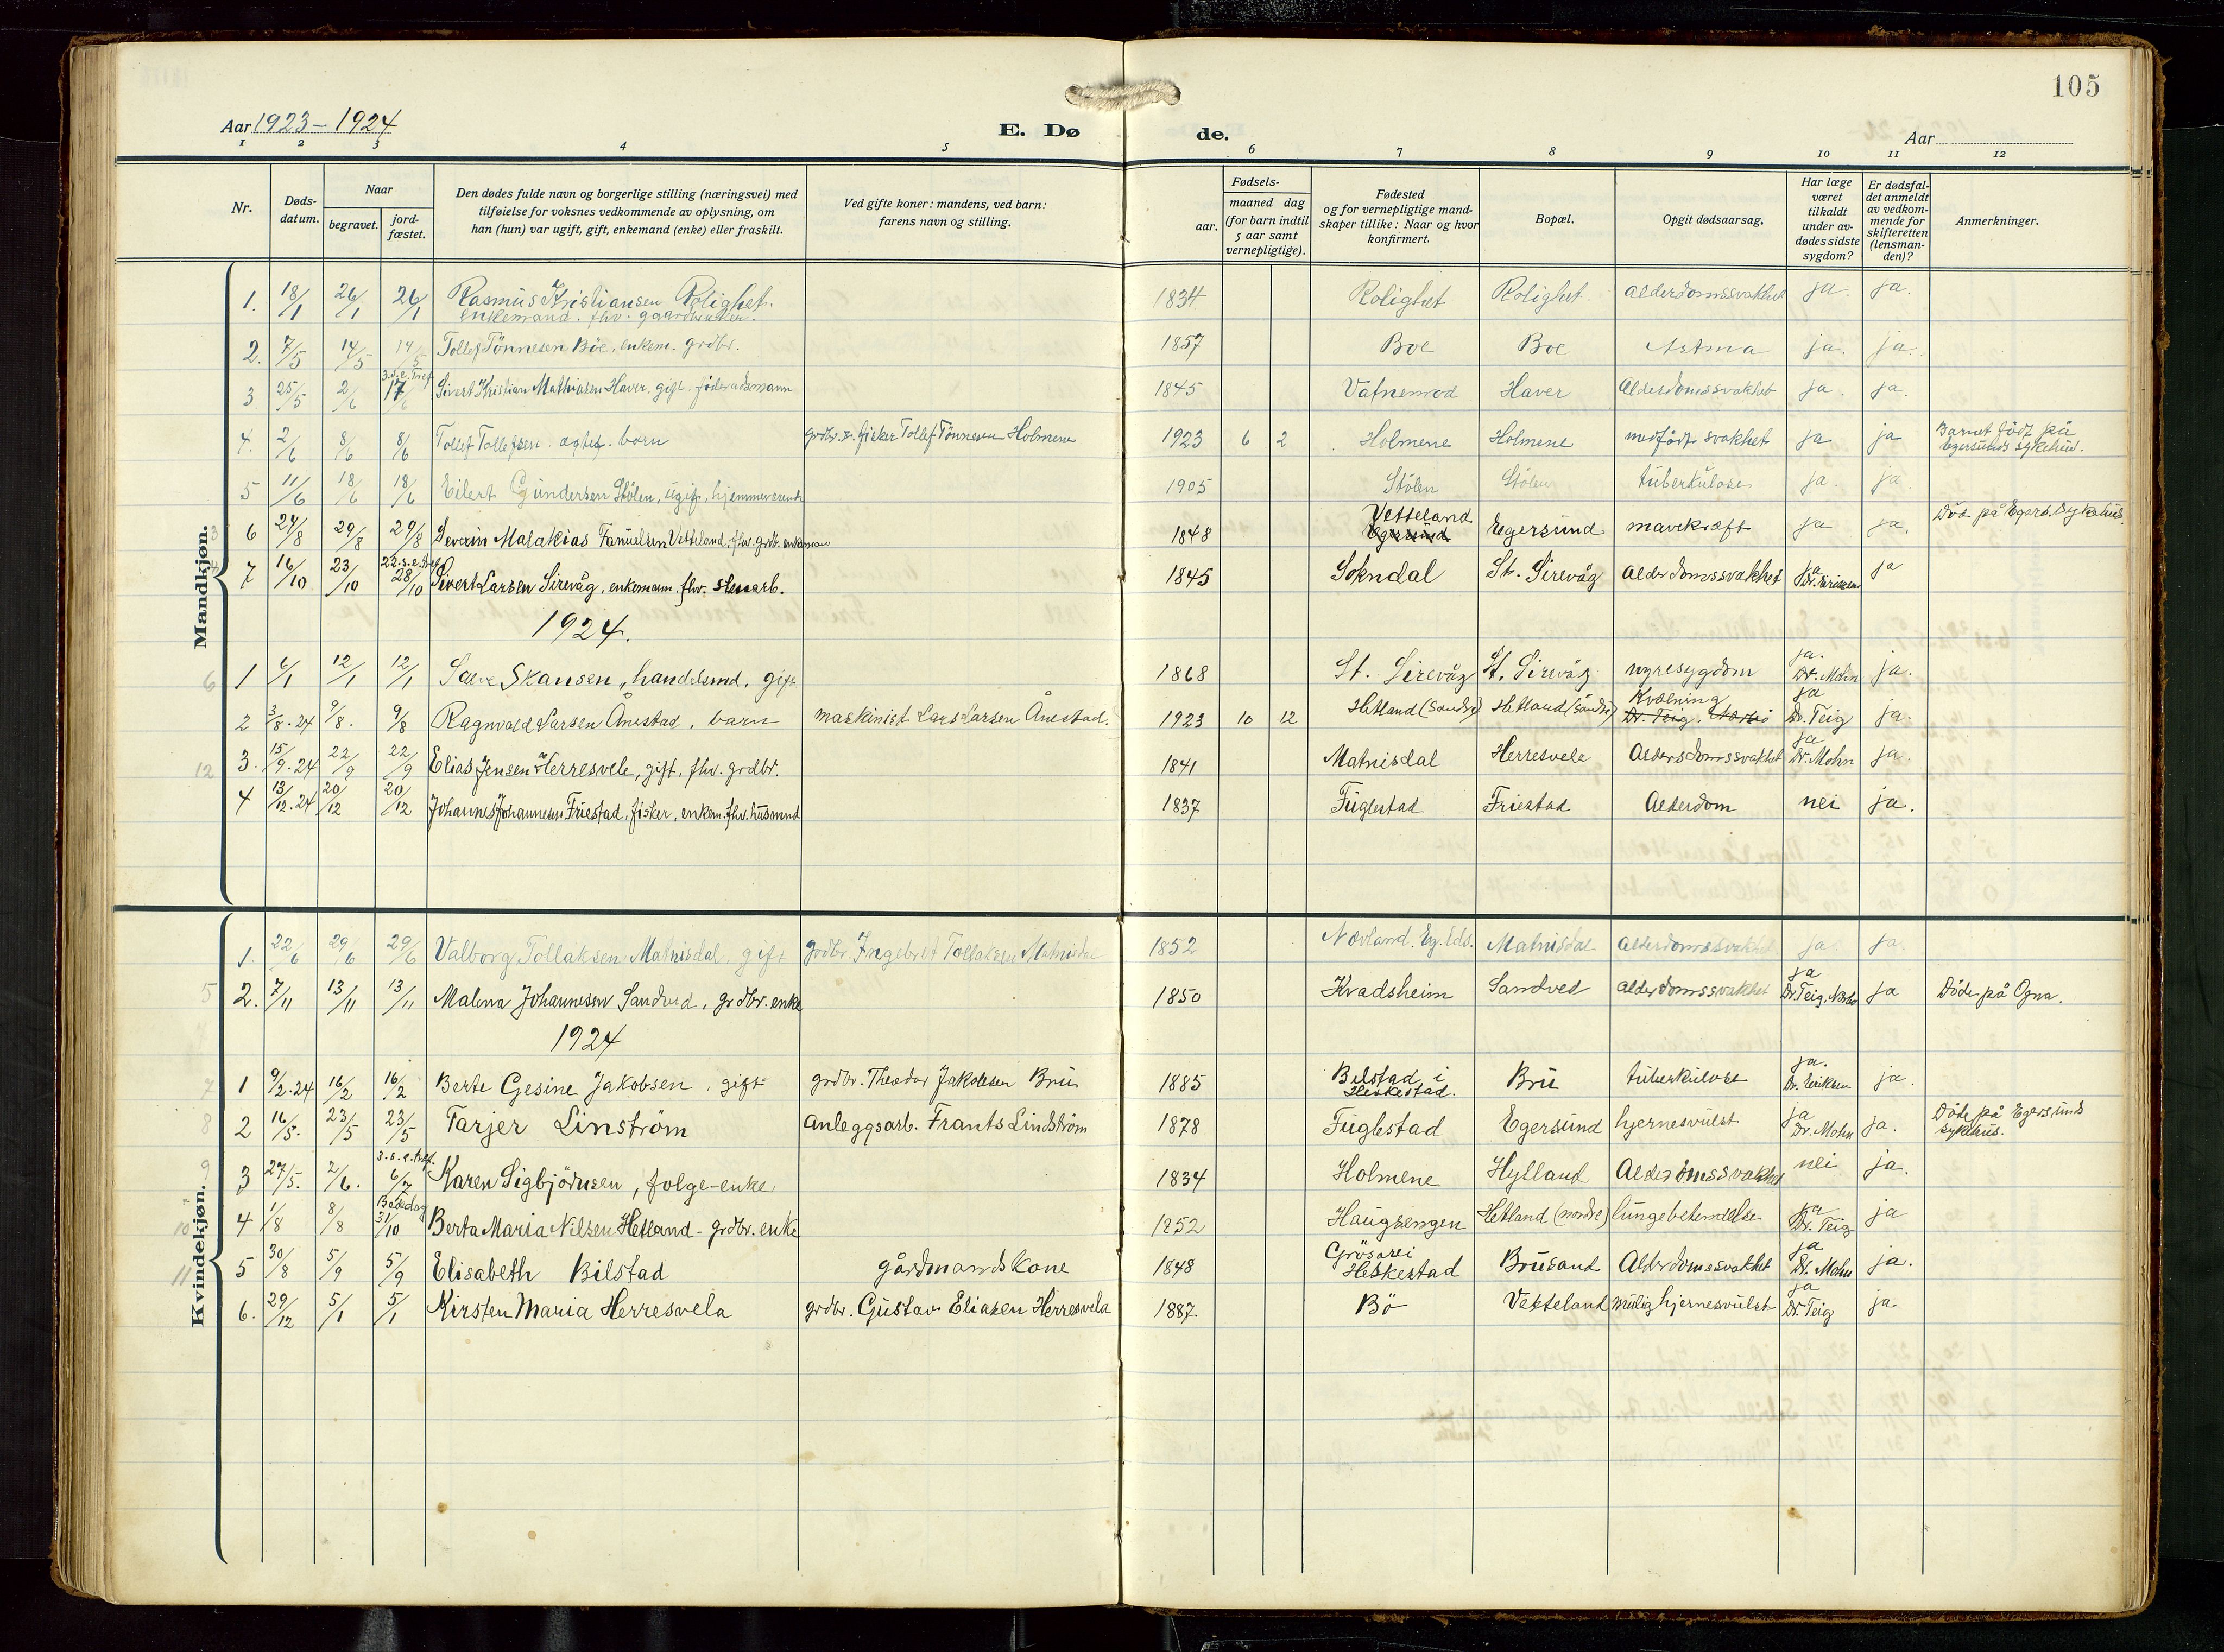 105
Aar 1923 – 1924
E. Dø
de.
Aar
1 2 3 4 5 6 7 8 9 10 11 12
Nr.
Døds-
datum.
Naar
begravet.
jord-
fæstet.
Den dødes fulde navn og borgerlige stilling (næringsvei) med
tilføielse for voksnes vedkommende av oplysning, om
han (hun) var ugift, gift, enkemand (enke) eller fraskilt.
Ved gifte koner: mandens, ved barn:
farens navn og stilling.
Fødsels-
aar.
maaned dag
(for barn indtil
5 aar samt
vernepligtige).
Fødested
og for vernepligtige mand-
skaper tillike: Naar og hvor
konfirmert.
Bopæl.
Opgit dødsaarsag.
Har læge
været
tilkaldt
under av-
dødes sidste
sygdom?
Er dødsfal-
det anmeldt
av vedkom-
mende for
skifteretten
(lensman-
den)?
Anmerkninger.
Mandkjøn.
1. 18/1 26/1 26/1 Rasmus Kristiansen Rolighet. 1834 Rolighet Rolighet. Alderdomssvakhet ja. ja.
enkemand. fhv. gaardbruker.
2. 7/5 14/5 14/5 Tollef Tönnesen Böe, enkem. grdbr. 1857 Boe Boe Astma ja. ja.
3.s.e.Tref
3 25/5 2/6 17/6 Sivert Kristian Mathiasen Haver, gift. föderadsmann 1845 Vatnemrod Haver Alderdomssvakhet ja. ja.
4. 2/6 8/6 8/6 Tollef Tollefsen. ægtef. barn grdbr. & fisker Tollef Tönnesen Holmene 1923 6 2 Holmene Holmene medfödt svakhet ja ja Barnet född på
Egersunds sykehus.
5 11/6 18/6 18/6 Eilert Gundersen Stölen, ugift, hjemmeværende 1905 Stölen Stölen tuberkulose ja. ja.
6 24/8 29/8 29/8 Severin Malakias Fanuelsen Vetteland, fhv. grdb. enkemann 1848 Vetteland Egersund Egersund mavekræft ja ja. Död på Egers. Sykehus.
22.s.e.tref
7 16/10 23/10 28/10 Sivert Larsen Sirevåg, enkemann. fhv. stenarb. 1845 Sokndal St. Sirevåg Alderdomssvakhet ja Dr. Eriksen ja
1924.
1 6/1 12/1 12/1 Salve Skansen, handelsmd, gift 1868 St. Sirevåg St. Sirevåg nyresygdom ja. Dr. Mohn ja.
2 3/8.24 9/8. 9/8 Ragnvald Larsen Ånestad, barn maskinist Lars Larsen Ånestad. 1923 10 12 Hetland (Söndre) Hetland (söndre) Kvælning Dr. Teig. ja Dr. Teig ja.
3. 15/9.24 22/9 22/9 Elias Jensen Herresvele, gift, fhv. grdbr. 1841 Matnisdal Herresvele Aldersdomssvakhet ja Dr. Mohn ja.
4 13/12.24 20/12 20/12 Johannes Johannesen Friestad, fisker, enkem. fhv. husmnd 1837 Fuglestad Friestad Alderdom nei ja.
Kvindekjøn.
1. 22/6 29/6 29/6 Valborg Tollaksen Matnisdal, gift grdbr. Ingebret Tollaksen Matnisdal 1852 Nævland. Eg. lds. Matnisdal Alderdomssvakhet ja ja
2. 7/11 13/11 13/11 Malena Johannesen Sandved, grdbr. enke 1850 Kvadsheim Sandved Alderdomssvakhet ja Dr. Teig. Nærbö ja Döde på Ogna.
1924
1 9/2.24 16/2 16/2 Berte Gesine Jakobsen, gift grdbr. Theodor Jakobsen Bru 1885 Belstad i
Heskestad. Bru tuberkulose ja. Dr. Eriksen ja.
2 16/5. 23/5 23/5 Tarjer Linström Anleggsarb. Frants Lindström 1878 Fuglestad Egersund hjernesvulst ja Dr. Mohn ja. Döde på Egersunds
sykehus.
3.s.e.tref.
3 27/5. 2/6. 6/7 Karen Sigbjörnsen, folge-enke 1834 Holmene Hylland Alderdomssvakhet nei ja.
Bededag
4 1/8 8/8 31/10 Berta Maria Nilsen Hetland - grdbr. enke 1852 Haugsengen Hetland (nordre) lungebetendelse ja Dr. Teig ja
5 30/8 5/9 5/9 Elisabeth Bilstad gårdmandskone 1848 Grösæei
Heskestad Brusand Alderdomssvakhet ja Dr. Mohn ja.
6. 29/12 5/1 5/1 Kirsten Maria Herresvela grdbr. Gustav Eliasen Herresvela 1887 Bö Vetteland mulig hjernesvulst ja Dr. Teig ja